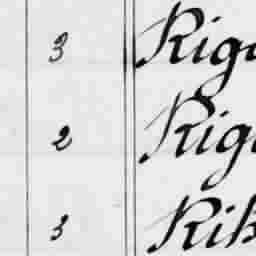 3 Riga
2 Riga
3 Rik